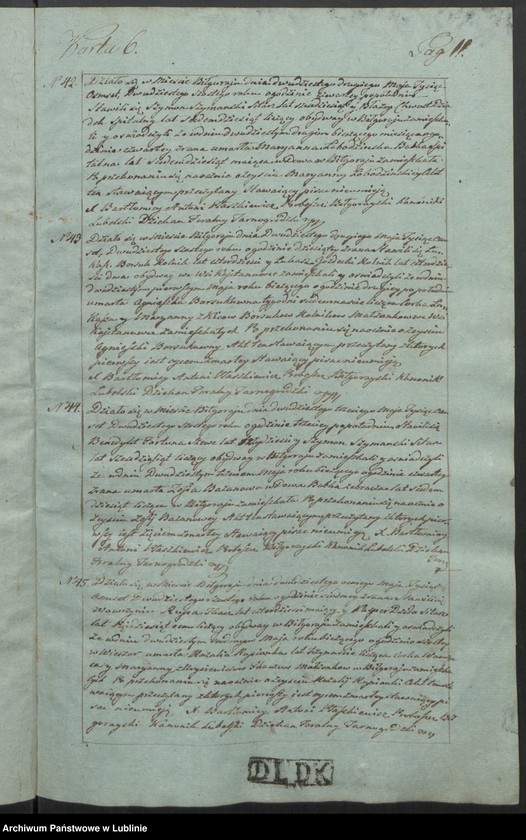 Karta 6.
Pag 11.
N° 42. Działo się w Mieście Biłgoraju dnia dwudziestego drugiego Maja Tysiąc
Osmset, Dwudziestego Szóstego roku o godzinie czwartey popołudniu
Stawili się, Szymon Szymanski Stolarz lat sześćdziesiąt, y Błażey Chwast Dzia
dek Szpitalny lat siedemdziesiąt liczący obydway w Biłgoraju zamieszka
li y oświadczyli że w dniu dwudziestym drugim bieżącego miesiąca y roku
o godzinie czwartey z rana umarła Maryanna Łobodzinska Babka szpi
talna lat siedemdziesiąt maiąca wdowa w Biłgoraju zamieszkała
Po przekonaniu się naocznie o zeysciu Maryanny Łobodzinskiey Akt
ten Stawaiącym przeczytany Stawaiący pisac nieumieią
X Bartłomiey Antoni Proboszcz Biłgorayski Kanonik
Lubelski Dziekan Foralny Tarnogrodzki
N° 43 Działo się w Mieście Biłgoraju dnia Dwudziestego drugiego Maja Tysiąc Osm
set, Dwudziestego Szóstego roku o godzinie dziesiątey z rana Stawili się Łu
kasz Borsuk Rolnik lat czterdzieści y Łukasz Rolnik lat czterdzie
ści dwa obydway we Wsi zamieszkali y oświadczyli że w dniu
dwudziestym pierwszym Maja roku bieżącego o godzinie drugiey popołudniu
umarła Agnieszka Borsukowna tygodni siedemnascie licząca Corka Łu
kasza y Maryanny Borsukow Rolnikow Małżonkow we Wsi
zamieszkałych Po przekonaniu się naocznie o zeysciu
Agnieszki Borsukowny Akt ten Stawaiącym przeczytany z których
pierwszy iest oycem zmarłey Stawaiący pisac nieumieią
X Bartłomiey Antoni Proboszcz Biłgorayski Kanonik
Lubelski Dziekan Foralny Tarnogrodzki
N° 44. Działo się w Mieście Biłgoraju dnia dwudziestego trzeciego Maja Tysiąc Osm
set Dwudziestego Szóstego roku o godzinie trzeciey popołudniu Stawili się
Benedykt Fortuna lat y Szymon Szymanski Stolarz
lat Sześćdziesiąt liczący obydway w Biłgoraju zamieszkali y oświadczyli
że w dniu Dwudziestym Maja roku bieżącego o godzinie czwartey
z rana umarła Zofia Bazanowa Wdowa Babka lat siedem
dziesiąt licząca w Biłgoraju zamieszkała Po przekonaniu się naocznie o
zeysciu Zofii Bazanowey Akt ten Stawaiącym przeczytany z których pier
wszy iest Zięciem zmarłey Stawaiący pisac nieumieią X Bartłomiey
Antoni Proboszcz Biłgorayski Kanonik Lubelski Dziekan
Foralny Tarnogrodzki
N° 45. Działo się w Mieście Biłgoraju dnia dwudziestego osmego Maja Tysiąc
Osmset Dwudziestego Szóstego roku o godzinie siódmey z rana Stawili się
Wawrzyniec lat czterdzieści maiący y Kasper Duda
lat pięćdziesiąt osm liczący obydway w Biłgoraju zamieszkali y oświadczyli
że w dniu dwudziestym Maja roku bieżącego o godzinie
w wieczor umarła Natalia lat licząca Corka Wawrzyń
ca y Maryanny Małżonkow w Biłgoraju zamieszka
łych Po przekonaniu się naocznie o zeysciu Natalii Akt ten Sta
waiącym przeczytany z których pierwszy iest oycem zmarłey Stawaiący pi
sac nieumieią X Bartłomiey Antoni Proboszcz Bił
gorayski Kanonik Lubelski Dziekan Foralny Tarnogrodzki
DLDK
Archiwum Państwowe w Lublinie